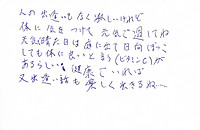 人の出逢いもなく淋しいけれど
体に気をつけて元気で過してね
天気晴た日は庭に出て日向ぼっこ
しても体に良いと言う(ビタミンC)が
あるらしい 健康でいれば
又出逢い話も楽しく出きるね…